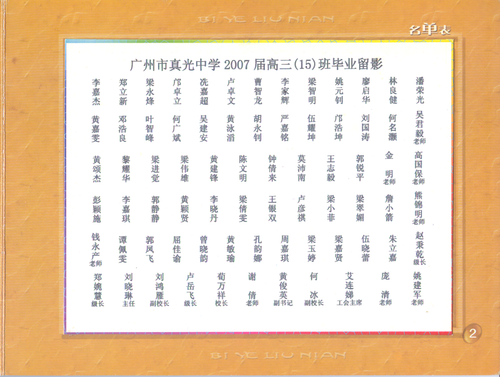 BI YE LIU NIAN
名单表
广州市真光中学2007届高三(15)班毕业留影
李嘉杰 郑立新 梁永烽 邝卓立 冼嘉超 卢卓文 曹智龙 李家辉 梁智明 姚元钊 廖启华 林良健 潘荣光
黄嘉雯 邓浩良 叶智峰 何广斌 吴建安 黄泳滔 胡永钊 严嘉铭 伍耀坤 邝浩坤 刘国涛 何名灏 吴君毅老师
黄颂杰 黎耀华 梁进觉 梁伟雄 黄建锋 陈文明 钟倩来 莫沛南 王志毅 郭锐平 金明老师 高国保老师
彭颖施 李嘉琪 郭静静 黄颖贤 李晓丹 梁倩雯 王银双 卢彦祺 梁小菲 梁翠媚 詹小箭 熊锦明老师
钱永产老师 谭佩雯 郭凤飞 屈佳谕 曾晓韵 黄敏瑜 孔韵娜 周嘉琪 梁玉婷 梁嘉贤 伍晓蕾 朱立嘉 赵秉乾级长
郑婉慧级长 刘晓琳主任 刘鸿雁副校长 卢岳飞级长 荀万祥校长 谢倩老师 黄俊英副书记 何冰副校长 艾连娣工会主席 庞清老师 姚建军老师
2
BI YE LIU NIAN